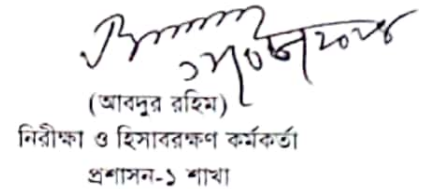 (আবদুর রহিম)
নিরীক্ষা ও হিসাবরক্ষণ কর্মকর্তা
প্রশাসন-১ শাখা